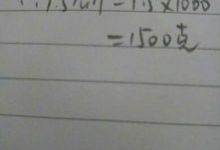 =1.5×1000
=1500克